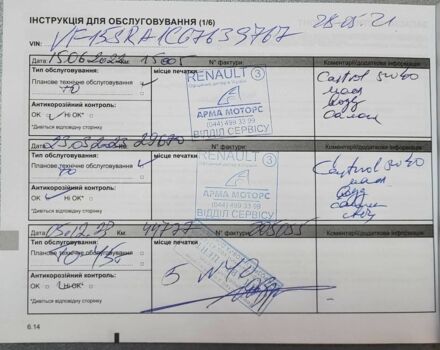 ІНСТРУКЦІЯ ДЛЯ ОБСЛУГОВУВАННЯ (1/6)
28.05.21
VIN: VF15SRA1C07639767
Дата: 15.06.2022 Км: 15005 № фактури: Коментарі/додаткова інформація
Тип обслуговування: місце печатки:
Планове технічне обслуговування
ТО
Антикорозійний контроль:
OK Ні OK*
*Дивіться відповідну сторінку
RENAULT 3
АРМА МОТОРС
(044) 499 33 99
ВІДДІЛ СЕРВІСУ
Castrol 5w40
Дата: 23.03.2023 Км: 29670 № фактури: Коментарі/додаткова інформація
Тип обслуговування: місце печатки:
Планове технічне обслуговування
ТО
Антикорозійний контроль:
OK Ні OK*
*Дивіться відповідну сторінку
RENAULT 3
АРМА МОТОРС
(044) 499 33 99
ВІДДІЛ СЕРВІСУ
Castrol 5w40
Дата: 05.12.23 Км: 44777 № фактури: Коментарі/додаткова інформація
Тип обслуговування: місце печатки:
Планове технічне обслуговування
Антикорозійний контроль:
OK Ні OK*
*Дивіться відповідну сторінку
5 w40
6.14